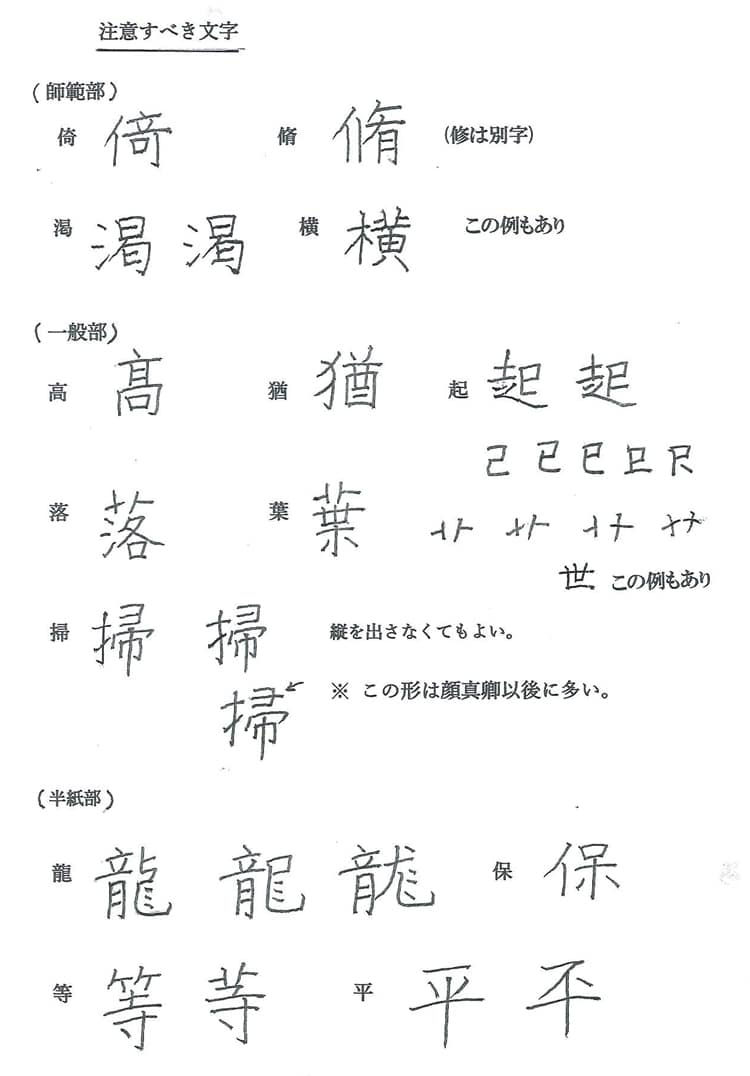 注意すべき文字
(師範部)
倚 倚 脩 脩 (修は別字)
渇 渇 渇 横 横 この例もあり
(一般部)
高 髙 猶 猶 起 起 起
己 已 巳
落 落 葉 葉
世 この例もあり
掃 掃 掃 縦を出さなくてもよい。
掃 ※ この形は顔真卿以後に多い。
(半紙部)
龍 龍 龍 龍 保 保
等 等 等 平 平 平